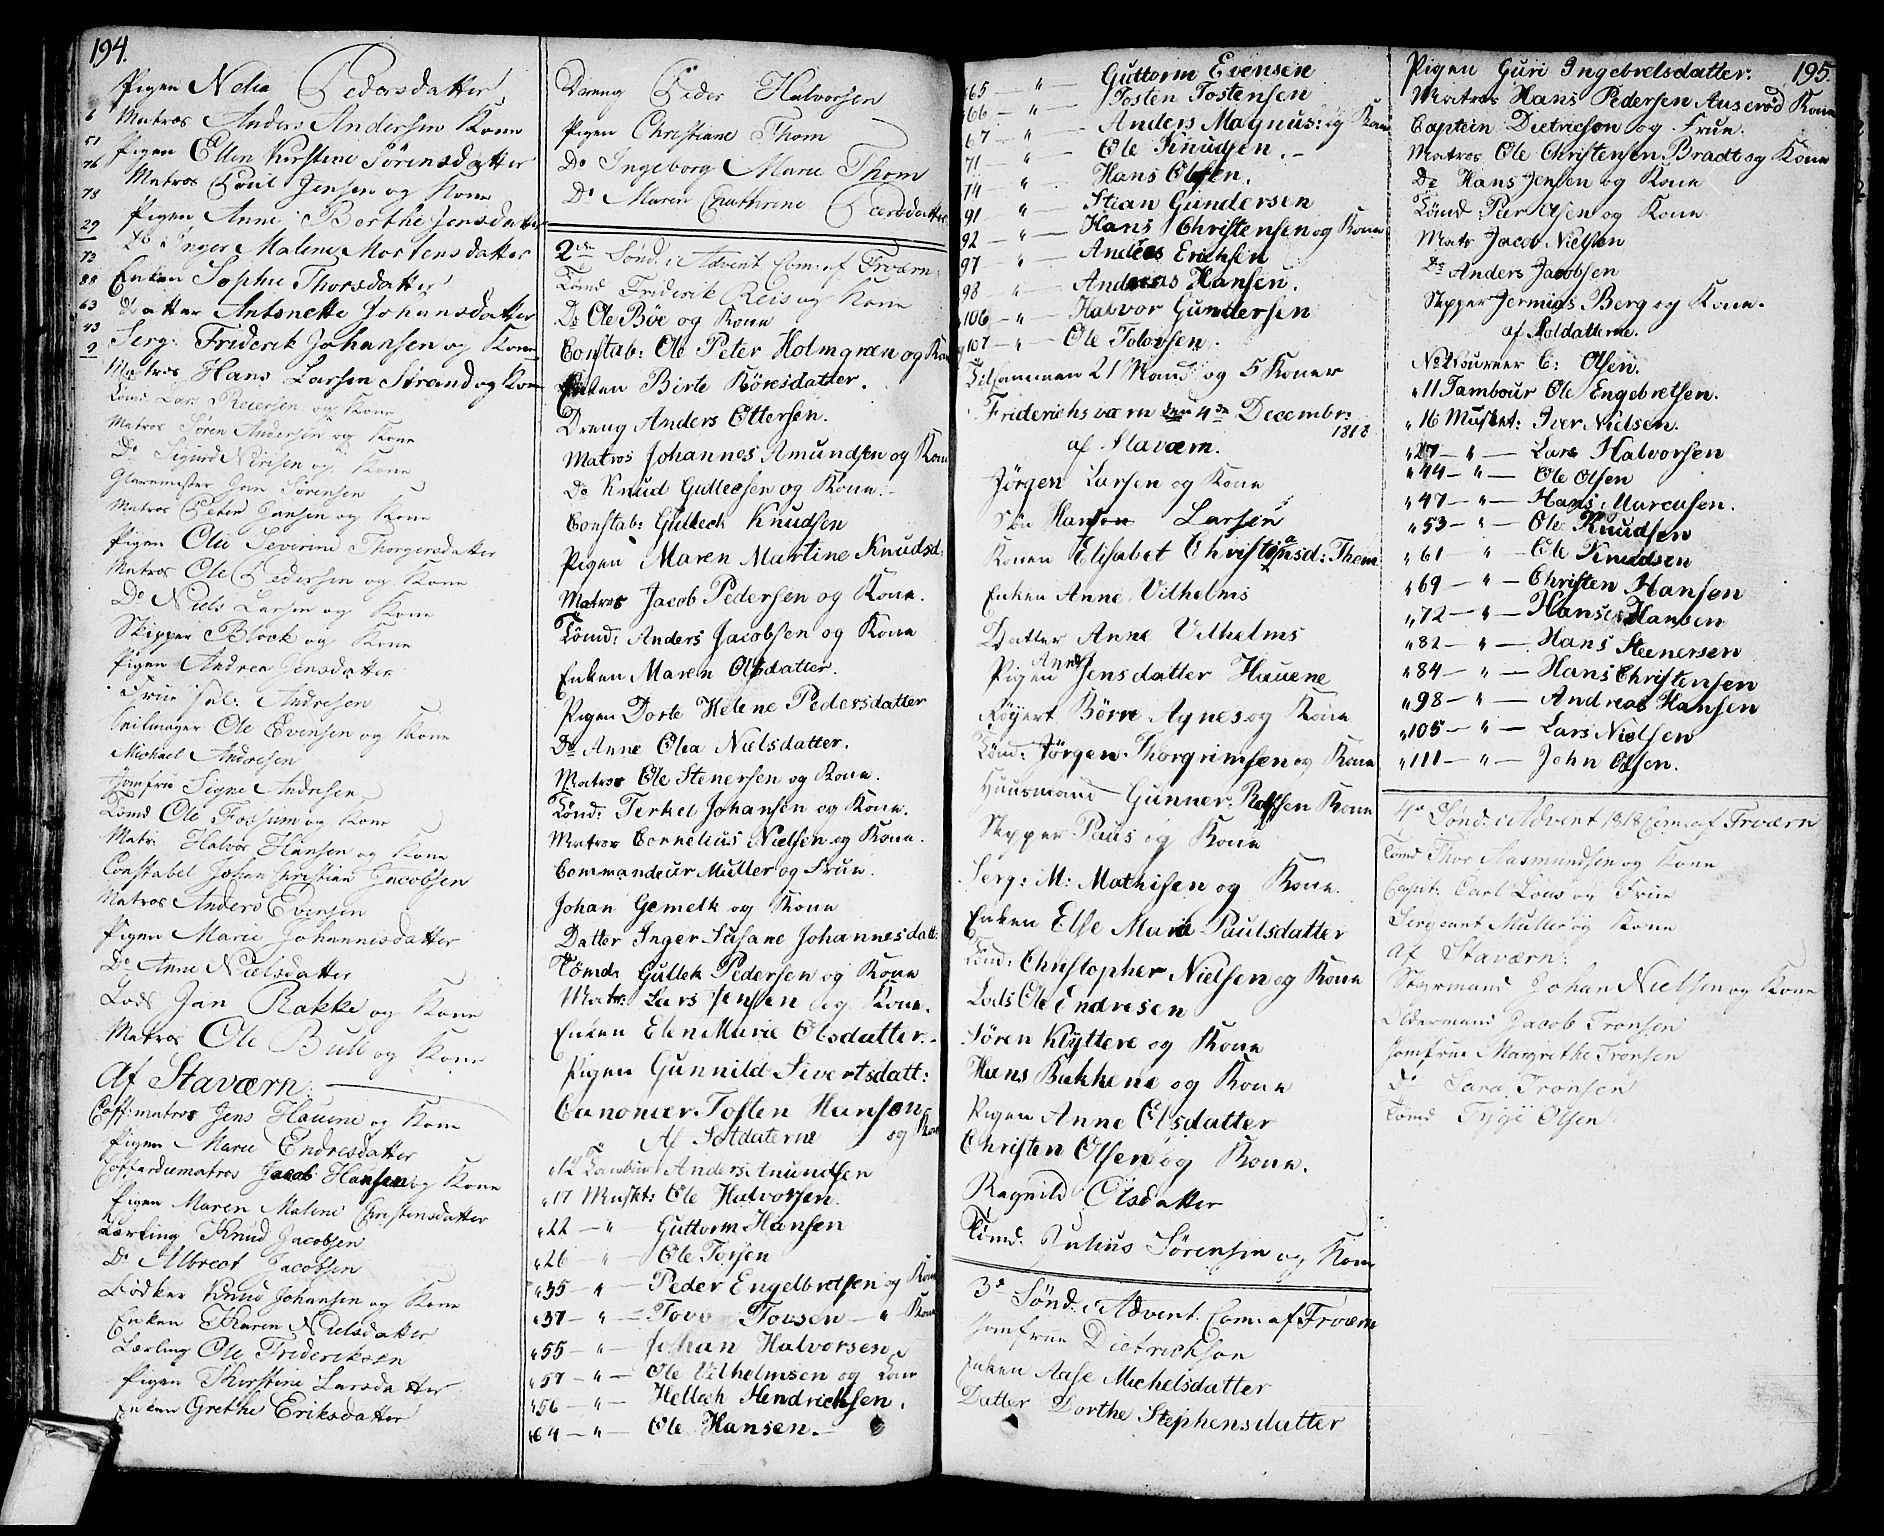 194.
Pigen Nelia Pedersdatter
6 Matros Anders Andersen Kone
51 Pigen Ellen Kirstine Sörensdatter
76 Matros Poul Jensen og Kone
78 Pigen Anne Berthe Jensdatter
29 Do Inger Malene Mortensdatter
73 Enken Sophie Thorsdatter
88 Datter Antonette Johansdatter
63 Serg: Friderik Johansen og Kone
43
9 Matros Hans Larsen Strand og Kone
Tömd Lars Reiersen og Kone
Matros Sören Andersen og Kone
Do Sigurd Nirisen og Kone
Glarmester Jan Sörensen
Matros Peter Jansen og Kone
Pigen Olii Severine Thorgersdatter
Matros Ole Pedersen og Kone
Do Niels Larsen og Kone
Skipper Block og Kone
Pigen Andrea Jensdatter
Frue sal. Andresen
Seilmager Ole Evensen og Kone
Michael Andresen
Jomfru Signe Andresen
Tömd Ole Fossum og Kone
Matr: Halvor Hansen og Kone
Constabel Johan Christian Jacobsen
Matros Anders Evensen
Pigen Marie Johannesdatter
Do Anne Nielsdatter
Lods Jan Rakke og Kone
Matros Ole Bull og Kone
Af Staværn:
Coff:matros Jens Hauene og Kone
Pigen Marie Endresdatter
Cofferdiematros Jacob Hansen og Kone
Pigen Maren Malene Christensdatter
Lærling Knud Jacobsen
Do Albrect Jacobsen
Bödker Knud Johansen og Kone
Enken Karen Nielsdatter
Lærling Ole Frideriksen
Pigen Kirstine Larsdatter
Enken Grethe Eriksdatter
Dreng Peder Halvorsen
Pigen Christiane Thom
Do Ingeborg Marie Thom
Do Maren Chathrine Peersdatter
2den Sönd. i Advent Com: af Frværn:
Tömd Friderik Reis og Kone
Do Ole Böe og Kone
Constab: Ole Peter Holmgren og Kone
Enken Birte Töresdatter.
Dreng Anders Ottersen.
Matros Johannes Amundsen og Kone
Do Knud Gullecsen og Kone.
Constab: Gulleck Knudsen
Pigen Maren Martine Knudsd:
Matros Jacob Pedersen og Kone.
Tömd: Anders Jacobsen og Kone
Enken Maren Olsdatter.
Pigen Dorte Helene Pedersdatter
Do Anne Olea Nielsdatter.
Matros Ole Stenersen og Kone.
Tömd: Terkel Johansen og Kone.
Matros Cornelius Nielsen og Kone.
Commandeur Muller og Frue.
Johan Gemelk og Kone
Datter Inger Susane Johannesdatt:
Tömd: Gullek Pedersen og Kone
Matr: Lars Jensen og Kone.
Enken Elen Marie Olsdatter.
Pigen Gunnild Sivertsdatt:
Canoneer Tosten Hansen og Kone
Af Soldaterne
No 12 Tambur Anders Anundsen
" 17 Muskt: Ole Halvorsen.
" 22 — " — Guttorm Hansen
" 26 " — Ole Torsen
" 35 — " — Peder Engelbretsen og Kone
" 37 — " — Tovo Tovsen — " Kone
" 55 — " — Johan Halvorsen
" 57 — " — Ole Vilhelmsen og Kone
" 56 — " — Hellech Hendrichsen.
" 64 — " — Ole Hansen.
" 65 — " — Guttorm Evensen
" 66 — " — Tosten Tostensen
" 67 — " — Anders Magnus: og Kone
" 71 — " — Ole Knudsen.
" 74 " — Hans Olsen.
" 91 — " — Stian Gundersen
" 92 — " — Hans Christensen og Kone
" 97 — " — Anders Erichsen
" 98 " — Andreas Hansen.
" 106 — " — Halvor Gundersen
" 107 — " — Ole Tolovsen.
Tilsammen 21 Mand og 5 Koner
Friderichsværn den 4de Decembr: 1818
af Staværn.
Jörgen Larsen og Kone
Sön Hanson Larsen
Konen Elisabet Christiansd: Thom
Enken Anne Vilhelms
Datter Anne Vilhelms
Pigen Anne Jensdatter Hauene
Röyert Börre Agnes og Kone
Tömd: Jörgen Thorgrimsen og Kone
Huusmand Gunner Rolfsen Kone
Skipper Paus og Kone
Serg: M: Mathisen og Kone.
Enken Else Marie Paulsdatter
Tömd: Christopher Nielsen og Kone
Lods Ole Endresen
Sören Klyttere og Kone
Hans Bakkene og Kone
Pigen Anne Olsdatter
Christen Olsen og Kone.
Ragnild Olsdatter
Tömd: Julius Sörensen og Kone
3de Sönd: i Advent Com: af Frværn
Jomfrue Dietrichson
Enken Aase Michelsdatter
Datter Dorthe Stephensdatter
Pigen Guri Ingebretsdatter. 195.
Matros Hans Pedersen Auserød Kone
Captein Dietricson og Frue.
Matros Ole Christensen Bradt og Kone
Do Hans Jensen og Kone
Tömd: Peer Olsen og Kone
Matr Jacob Nielsen
Do Anders Jacobsen
Skipper Jermias Berg og Kone.
af Soldatterne.
No 2 Foureer C: Olsen.
" 11 Tambour Ole Engebretsen.
" 16 Musket: Iver Nielsen.
" 27 — " — Lars Halvorsen
" 44 — " — Ole Olsen
" 47 — " — Hans Marcusen.
" 53 — " — Ole Knudsen
" 61 " — Ole Knudsen
" 69 — " — Christen Hansen
" 72 — " — Hans Hansen
" 82 — " — Hans Steenersen
" 84 — " — Hans Christensen
" 98 — " — Andreas Hansen
" 105 — " — Lars Nielsen
" 111 — " — John Olsen.
4de Sönd: i Advent 1818 Com: af Frværn
Tömd Thor Aasmundsen og Kone
Capt: Carl Lous og Frue
Sergeant Muller og Kone
af Staværn:
Styrmand Johan Nielsen og Kone
Oldermand Jacob Tronsen
Jomfrue Margrethe Tronsen
Do Sara Tronsen
Tömd Tyge Olsen